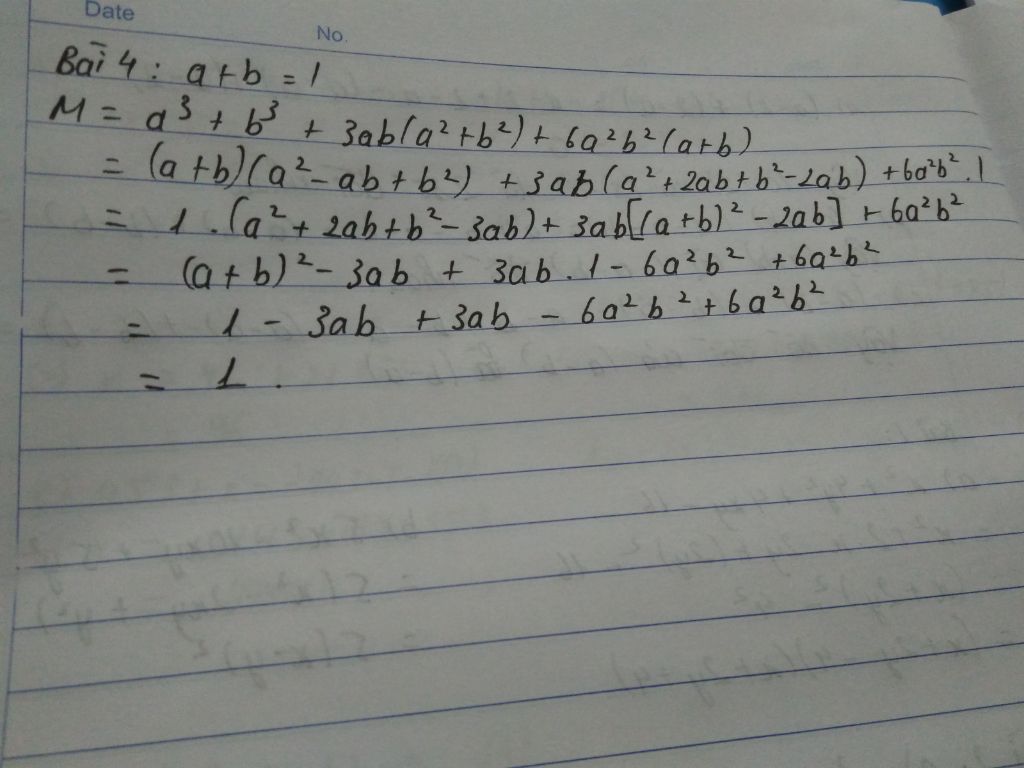 Date
No.
Bài 4 : a+b = 1
M = a³ + b³ + 3ab(a²+b²) + 6a²b²(a+b)
= (a+b)(a²-ab+b²) + 3ab(a²+2ab+b²-2ab) + 6a²b².1
= 1.(a²+2ab+b²-3ab) + 3ab[(a+b)²-2ab] + 6a²b²
= (a+b)² - 3ab + 3ab.1 - 6a²b² + 6a²b²
= 1 - 3ab + 3ab - 6a²b² + 6a²b²
= 1.